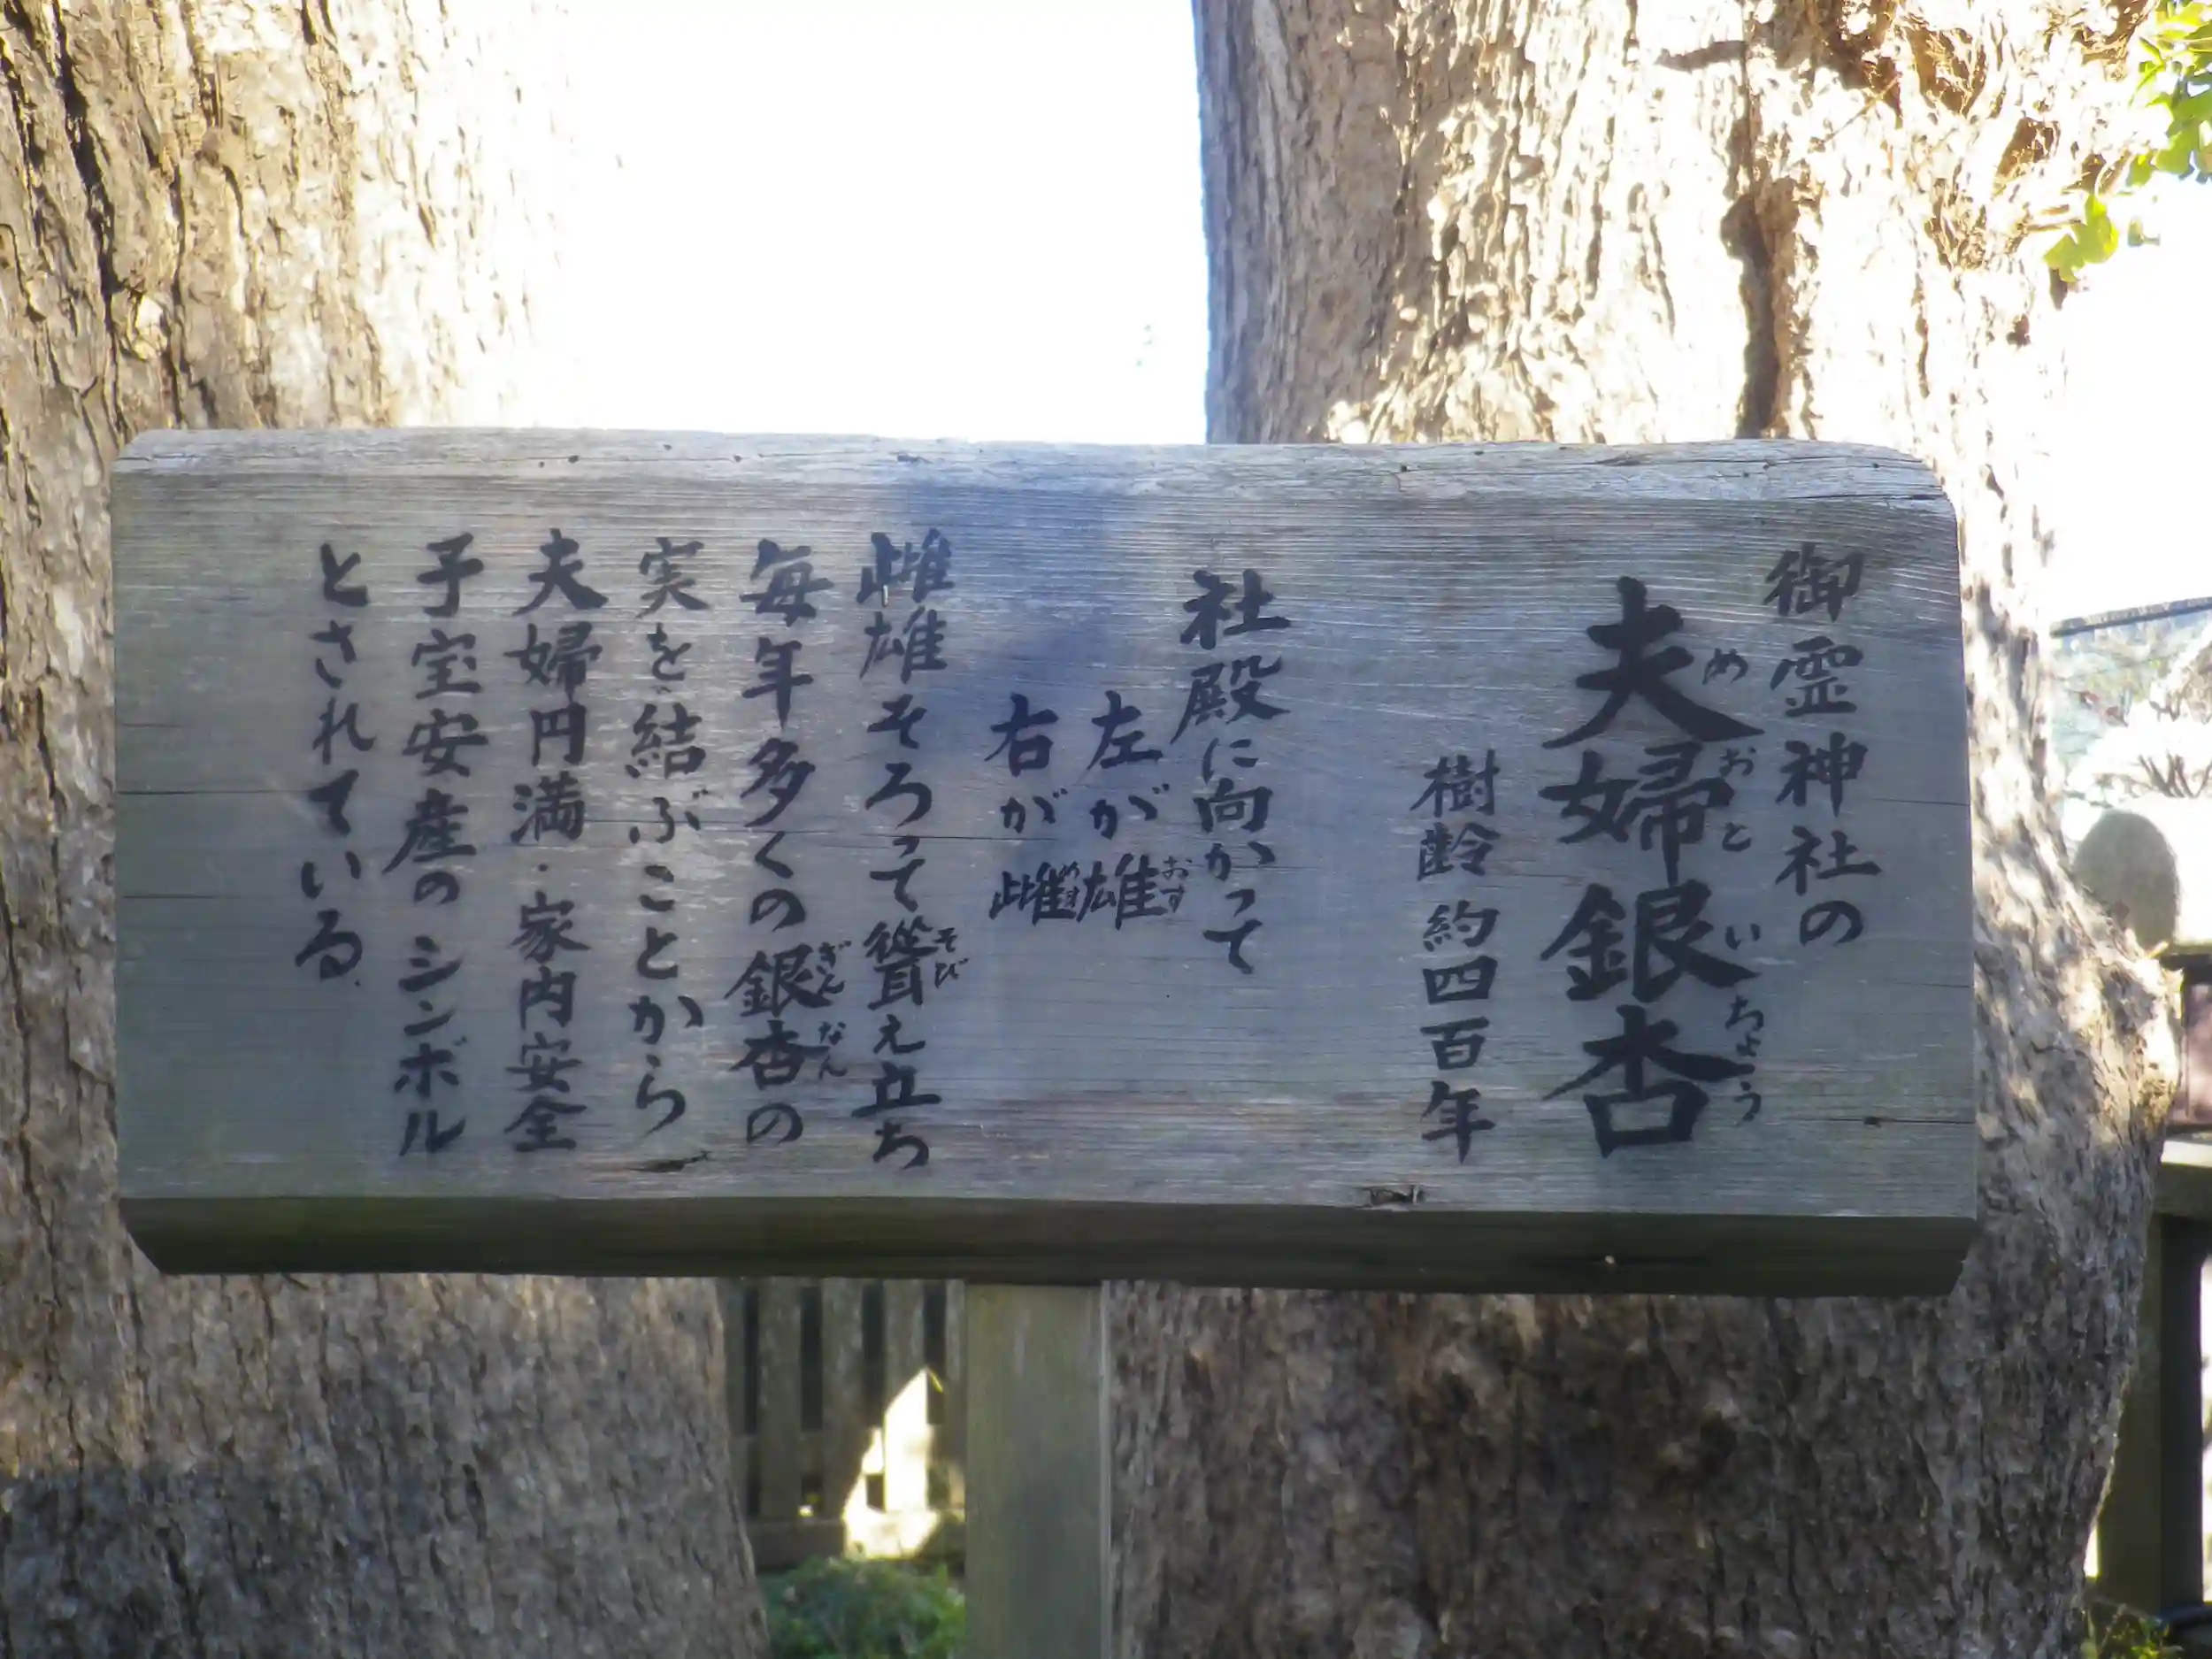 御霊神社の
夫婦銀杏
めおといちょう
樹齢約四百年
社殿に向かって
左が雄
おす
右が雌
めす
雌雄そろって聳え立ち
そび
毎年多くの銀杏の
ぎんなん
実を結ぶことから
夫婦円満・家内安全
子宝安産のシンボル
とされている。